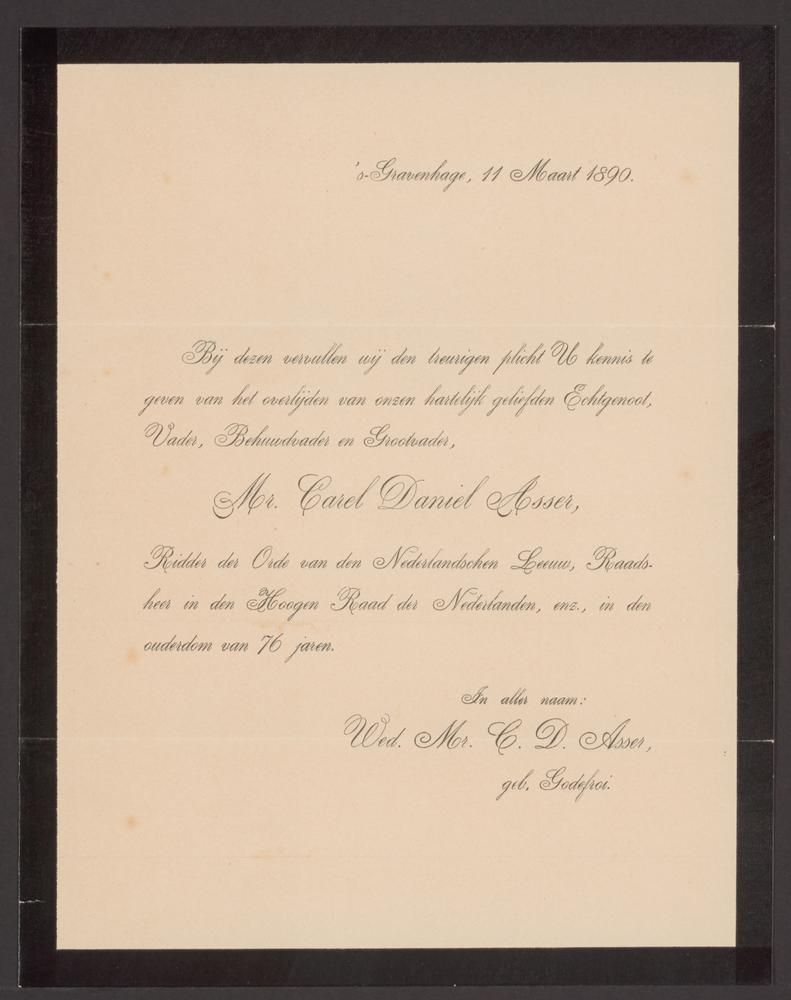 's-Gravenhage, 11 Maart 1890.
Bij dezen vervullen wij den treurigen plicht U kennis te
geven van het overlijden van onzen hartelijk geliefden Echtgenoot,
Vader, Behuwdvader en Grootvader,
Mr. Carel Daniel Asser,
Ridder der Orde van den Nederlandschen Leeuw, Raads-
heer in den Hoogen Raad der Nederlanden, enz., in den
ouderdom van 76 jaren.
In aller naam:
Wed. Mr. C. D. Asser,
geb. Godefroi.